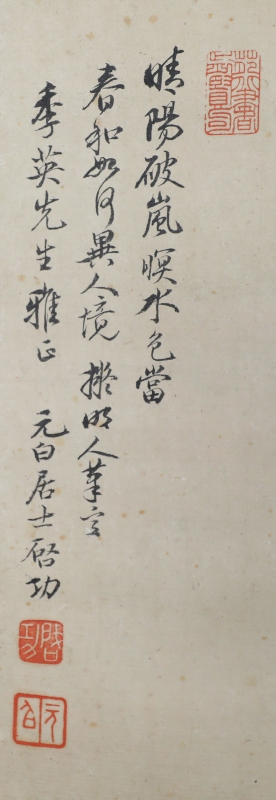 晴陽破嵐暝水色當
春和如何異人境 擬明人筆意
季英先生雅正 元白居士啓功
啓功
元白